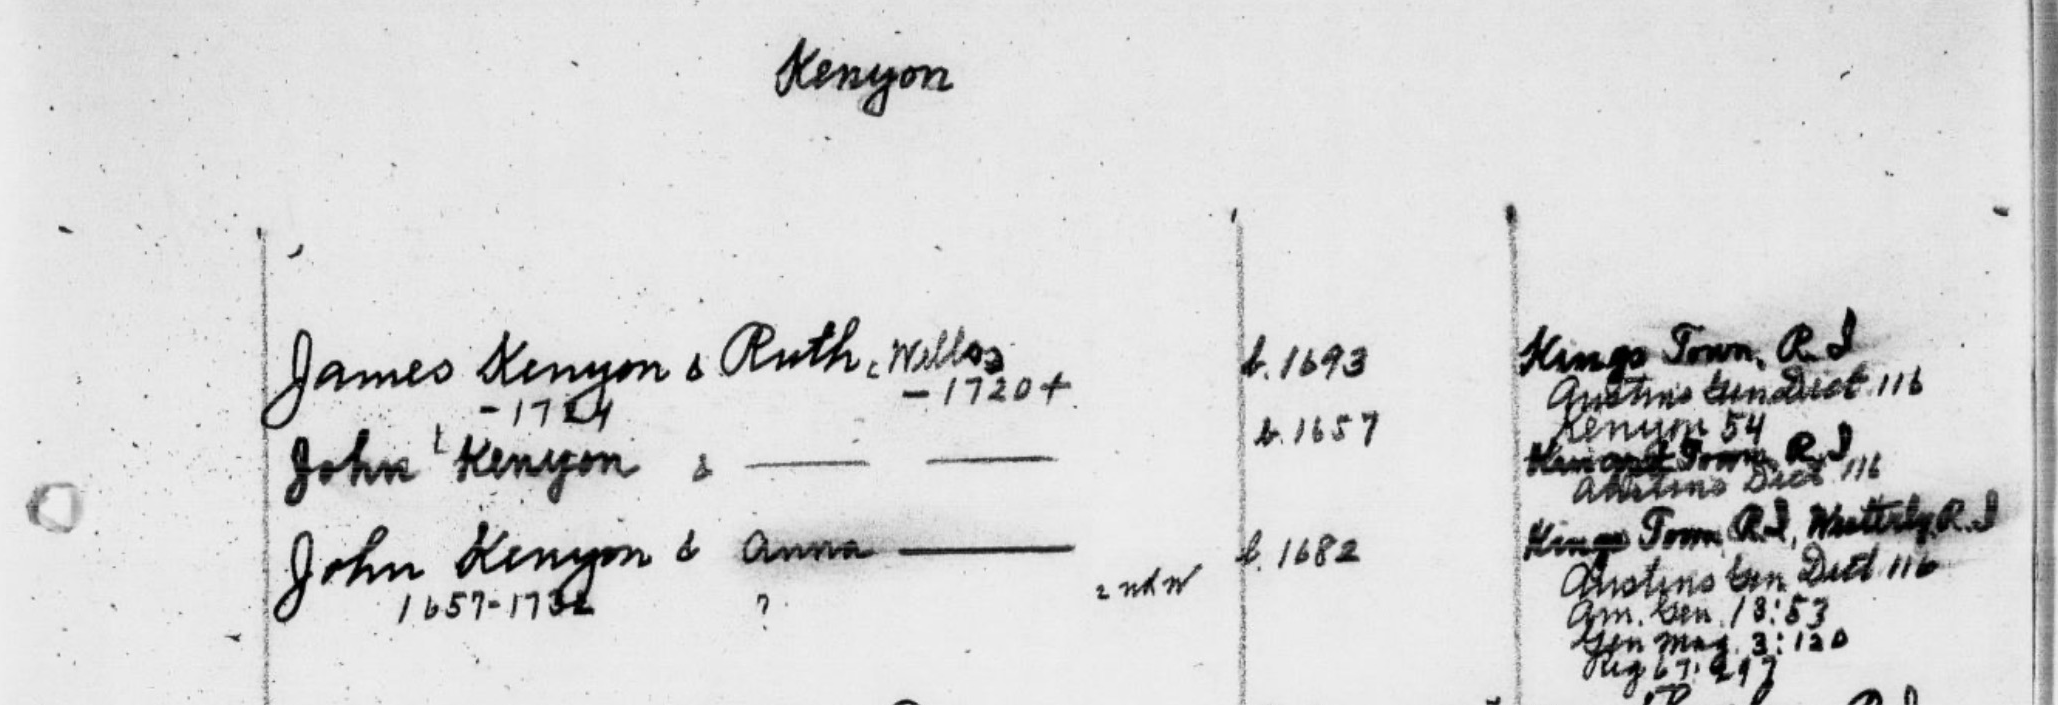 Kenyon
James Kenyon & Ruth Wells b. 1693 Kings Town, R.I
-1724 -1720+ Austins Gen Dict 116
Kenyon 54
John Kenyon & — — b. 1657 Town, R.I
Austins Dict 116
John Kenyon & Anna — b. 1682 Kings Town R.I, Westerly R.I
1657-1732 ? 2nd W Austins Gen Dict 116
Am. Gen. 13:53
Gen Mag. 3:120
Reg 67:
R I